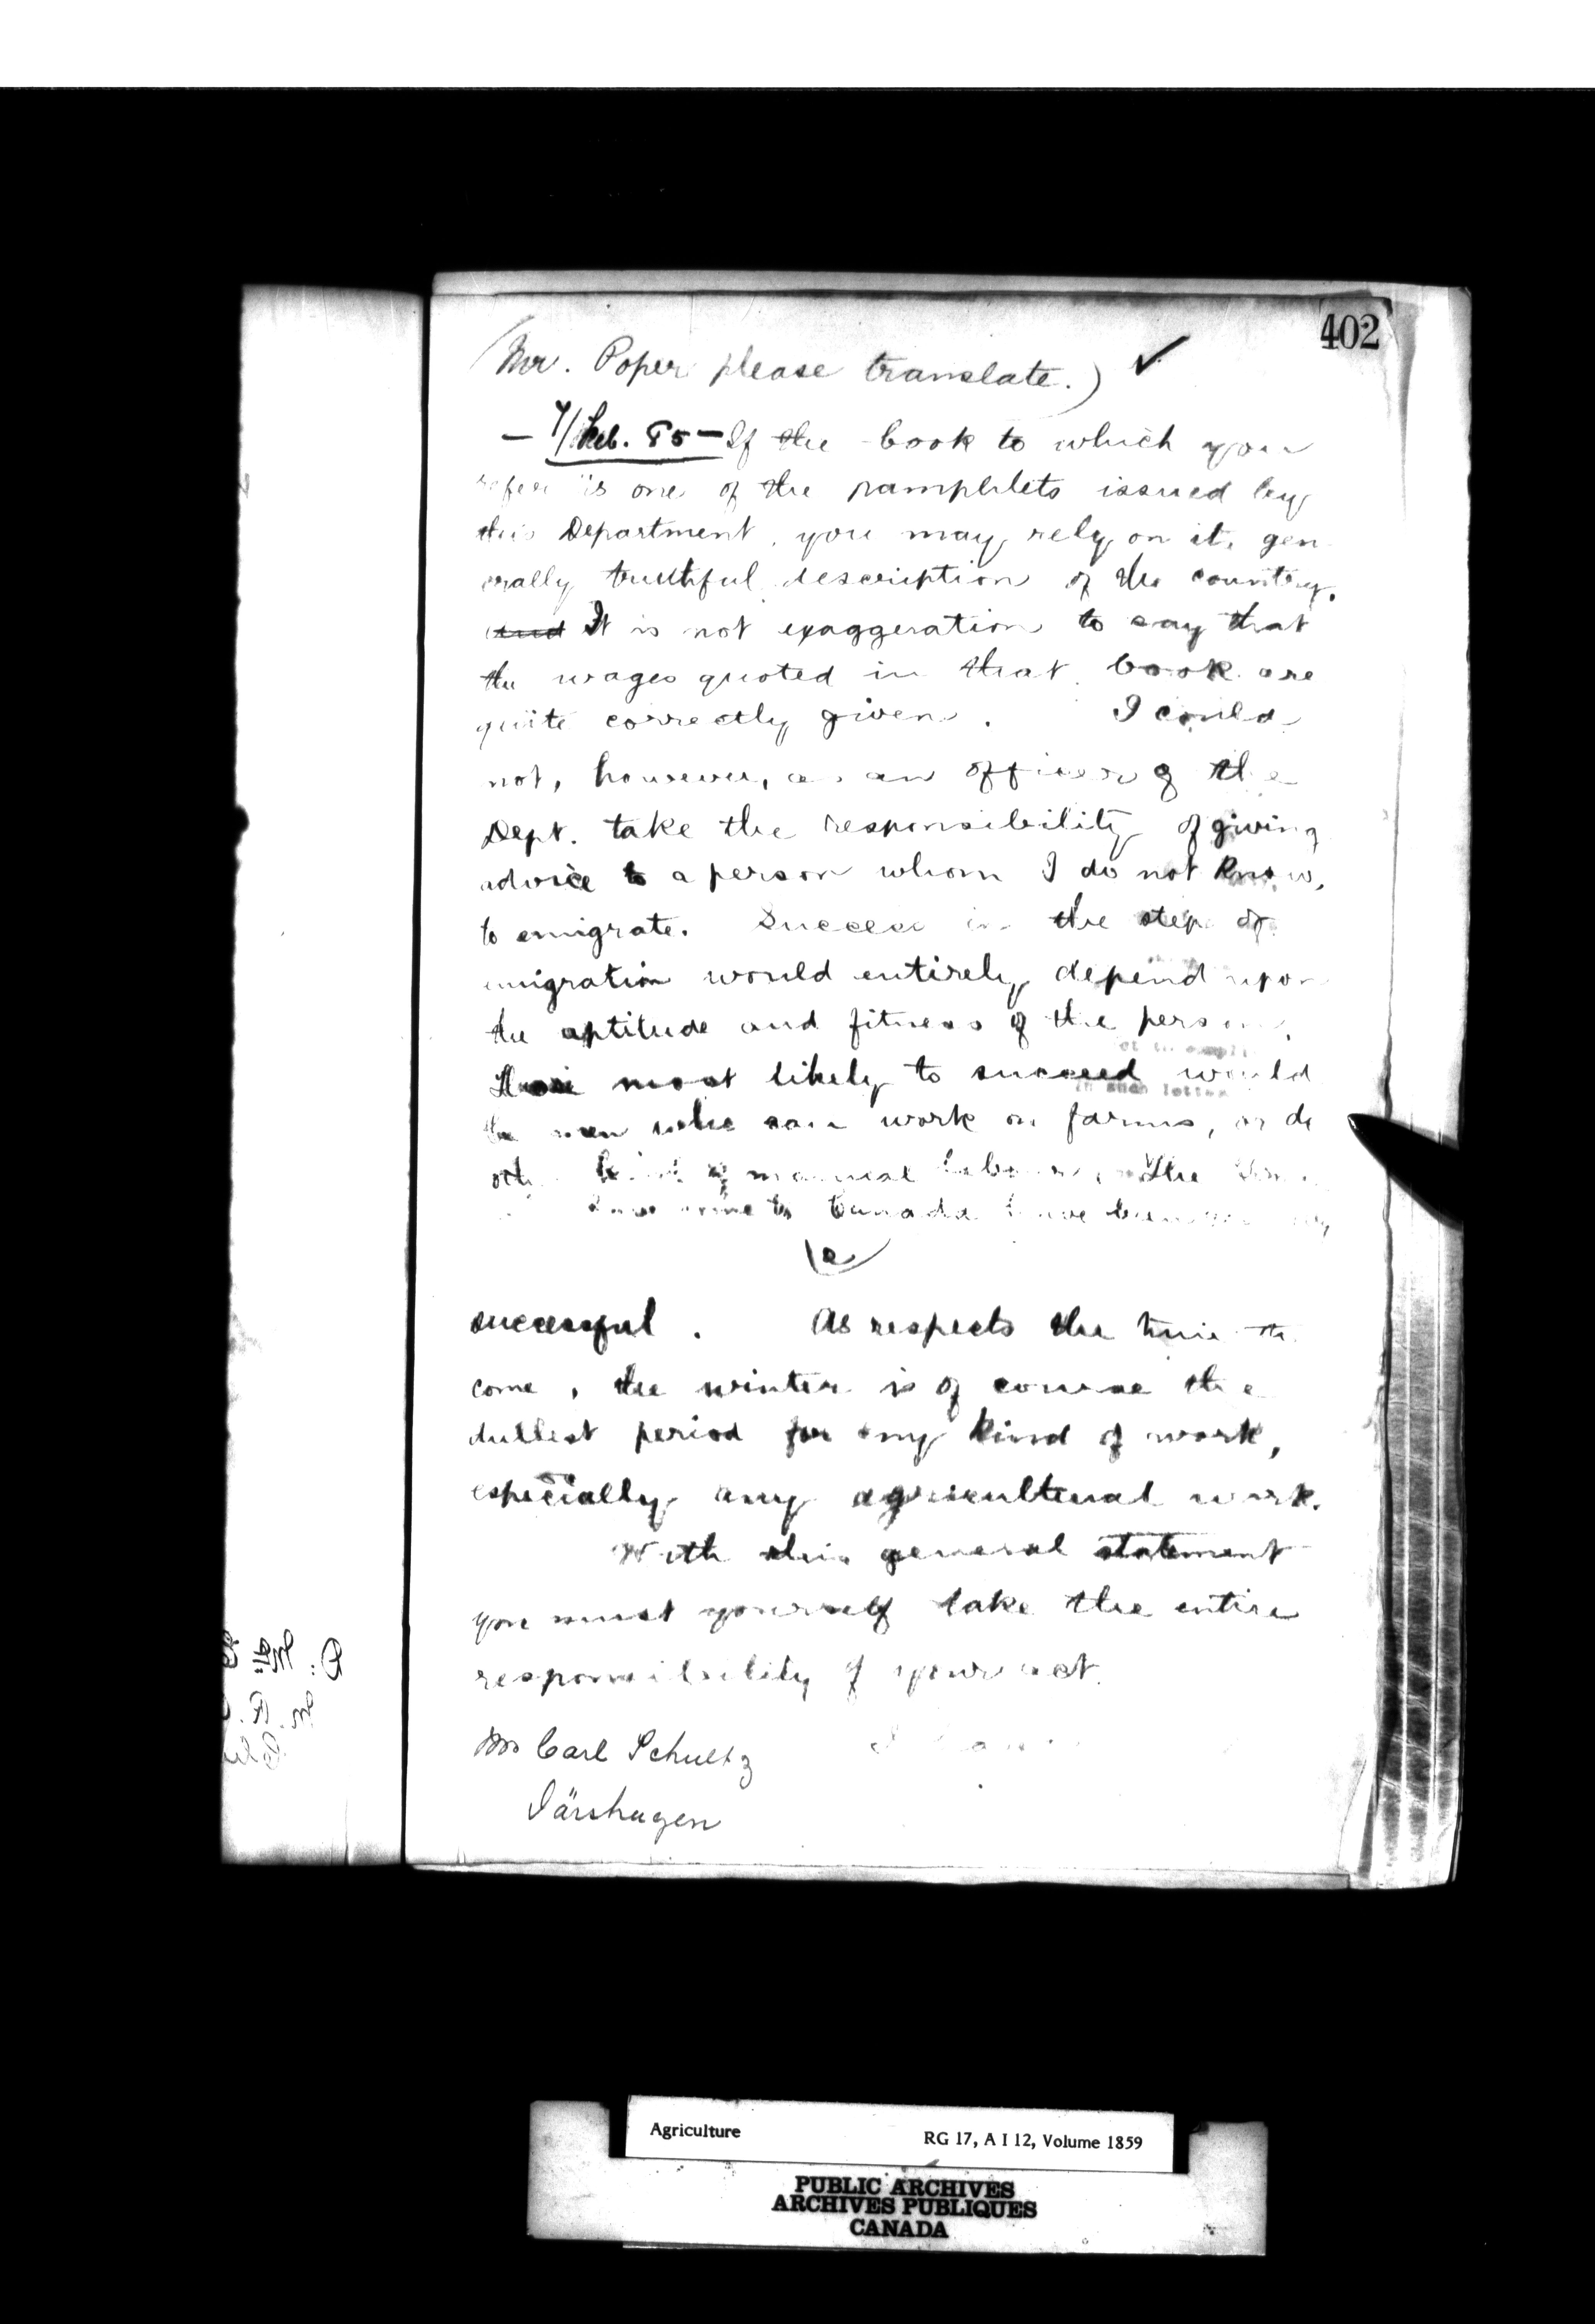 402
(Mr. Poper please translate.) ✓
— 7/Feb. 85 — If the book to which you
refer is one of the pamphlets issued by
this Department, you may rely on its gen
erally truthful description of the country.
and It is not exaggeration to say that
the wages quoted in that book are
quite correctly given. I could
not, however, as an officer of the
Dept. take the responsibility of giving
advice to a person whom I do not know,
to emigrate. Success in the step of
emigration would entirely depend upon
the aptitude and fitness of the person.
Those most likely to succeed would
be men who can work on farms, or do
other kind of manual labour. The
have come to Canada have been
(2)
successful. As respects the time to
come, the winter is of course the
dullest period for any kind of work,
especially any agricultural work.
With this general statement
you must yourself take the entire
responsibility of your act.
Mr Carl Schultz
Järshagen
Agriculture
RG 17, A I 12, Volume 1859
PUBLIC ARCHIVES
ARCHIVES PUBLIQUES
CANADA